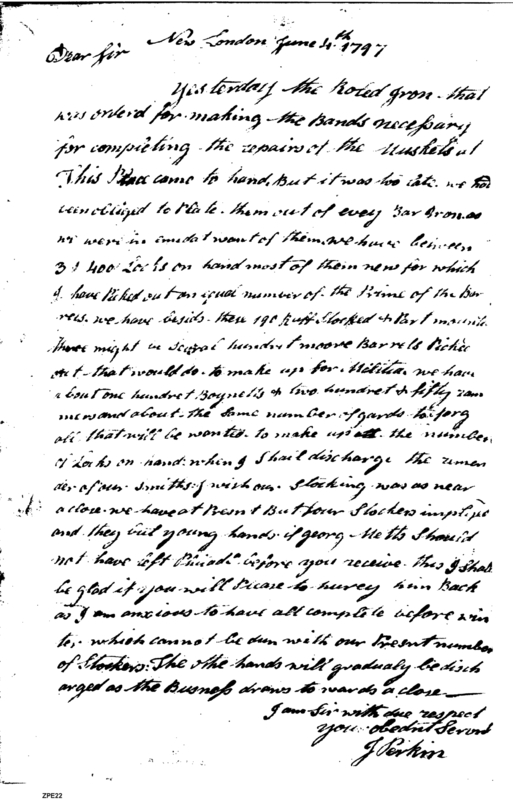 New London June 4th 1797
Dear Sir
Yesterday the Roled Iron that
was orderd for making the Bands necessary
for completing the repairs of the Muskets at
This Place came to hand, But it was too late. we had
been obliged to Plate them out of evey Bar Iron as
we were in want of them, we have between
3 & 400 Locks on hand most of them new for which
I have Picked out an equal number of the Prime of the Bar
rels. we have besids these 190 Ruff Stocked & Part mounted
there might be several hundret moore Barrels Picked
out that would do to make up for Militia we have
about one hundret Boynetts & two hundret & fifty ram
mers and about the same number of gards to forg
all that will be wanted to make up the number
of Locks on hand. when I shall discharge the remen
der of our Smiths, I wish our Stocking was as near
a close. we have at Presnt But four Stockers
and they but young hands. if georg Metts Should
not have left Philadl before you receive this I shall
be glad if you will Please to hurey him Back
as I am anxious to have all complete before win
ter which cannot be dun with our Presnt number
of Stockers. The othe hands will gradualy be disch
arged as the Business draws to wards a close
I am Sir with due respect
your obednt Servnt
J Perkin
ZPE22